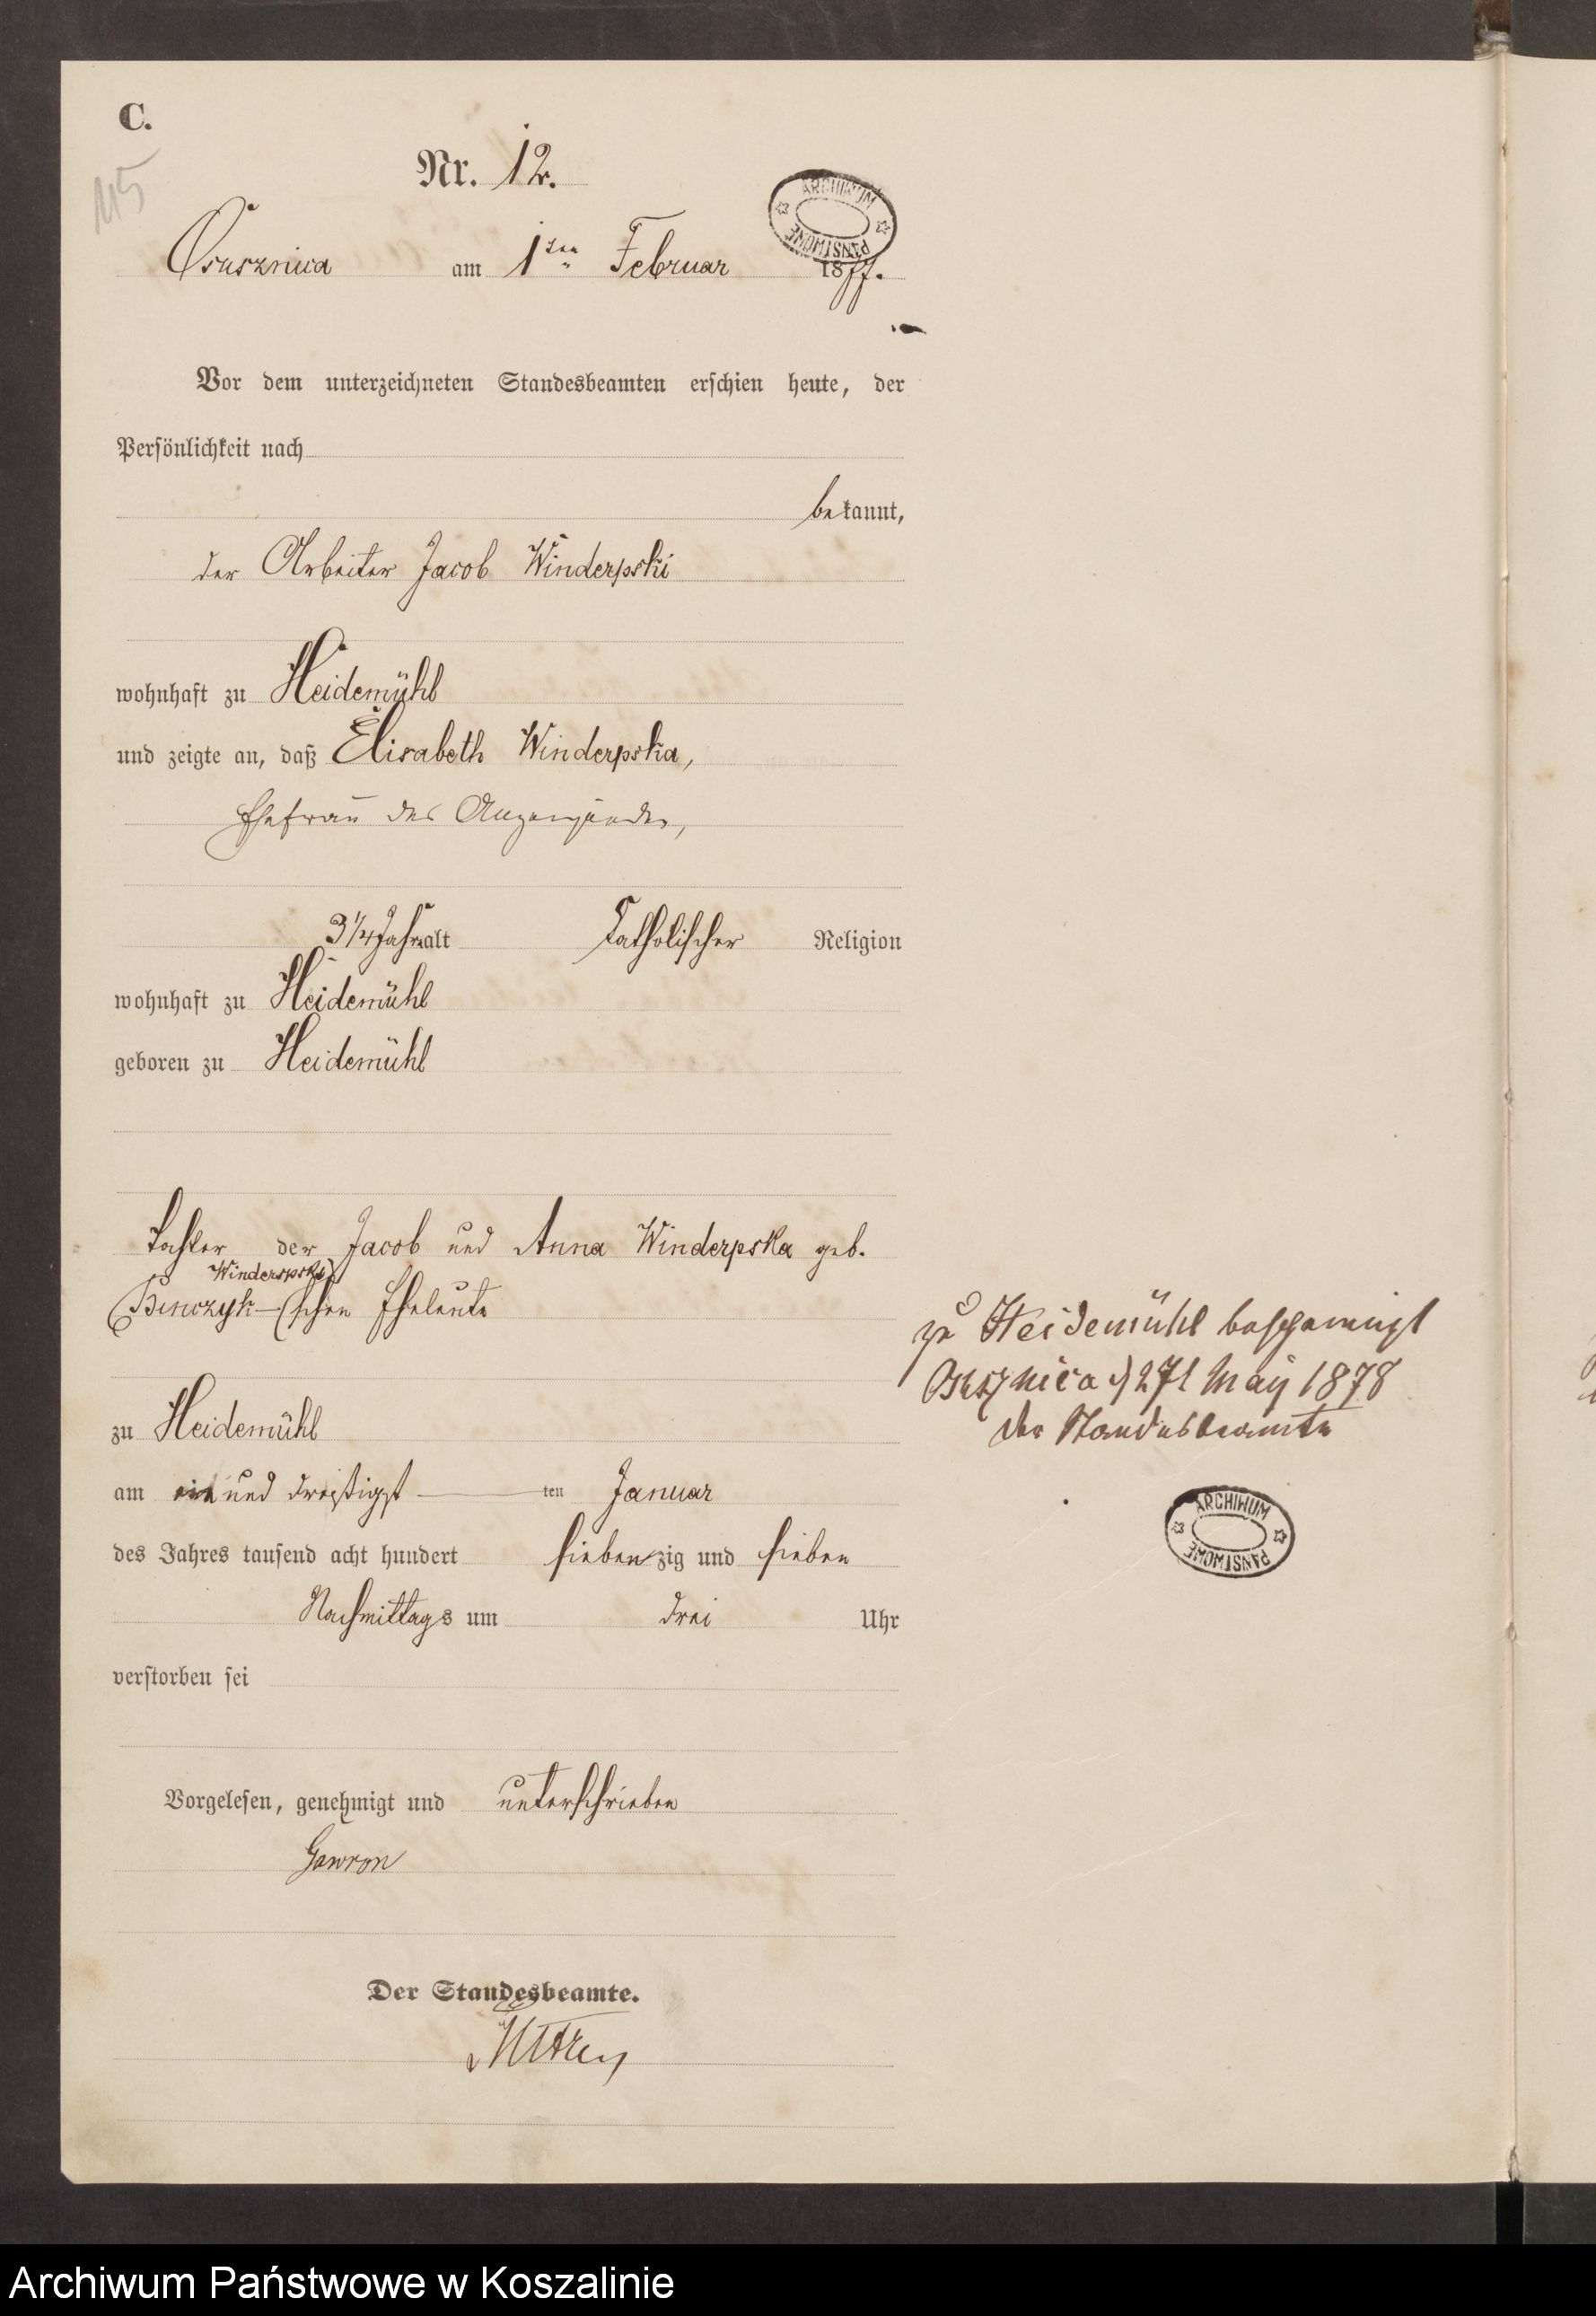 C.
115
Nr. 12.
Osusznica am 1ten Februar 1877.
ARCHIWUM PAŃSTWOWE
Vor dem unterzeichneten Standesbeamten erschien heute, der
Persönlichkeit nach
bekannt,
der Arbeiter Jacob Winderpski
wohnhaft zu Heidemühl
und zeigte an, daß Elisabeth Winderpska,
Ehefrau des
3 1/4 Jahr alt Catholischer Religion
wohnhaft zu Heidemühl
geboren zu Heidemühl
Tochter der Jacob und Anna Winderpska geb.
Winderspski
Benczyk-schen Eheleute
zu Heidemühl bescheinigt
Osusznica d 27t May 1878
der Standesbeamte
zu Heidemühl
am ein und dreißigst ten Januar
des Jahres tausend acht hundert siebenzig und sieben
ARCHIWUM PAŃSTWOWE
Nachmittags um drei Uhr
verstorben sei
Vorgelesen, genehmigt und unterschrieben
Gawron
Der Standesbeamte.
Archiwum Państwowe w Koszalinie